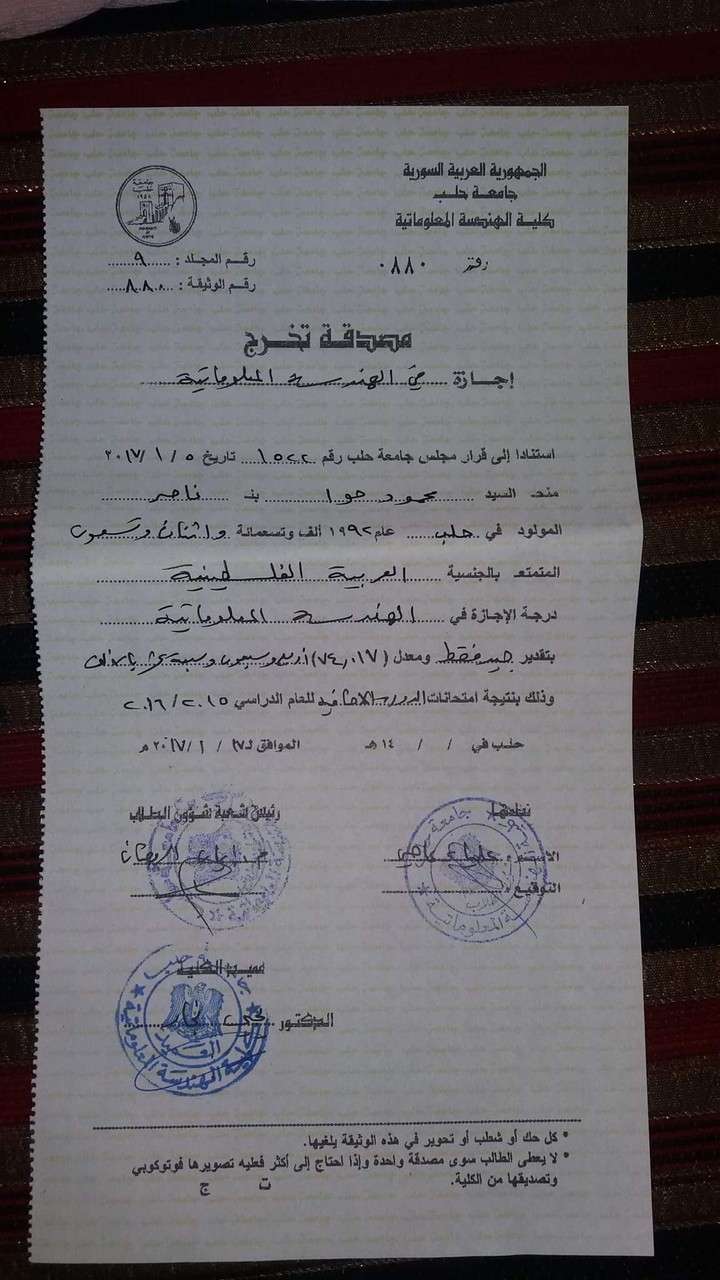 الجمهورية العربية السورية
جامعة حلب
كلية الهندسة المعلوماتية
جامعة حلب
١٩٥٨
UNIVERSITY OF ALEPPO
رقم ٠٨٨٠
رقم المجلد : ٩
رقم الوثيقة : ٨٨٠
مصدقة تخرج
إجازة في الهندسة المعلوماتية
استنادا إلى قرار مجلس جامعة حلب رقم ١٥٢٢ تاريخ ٥ / ١ / ٢٠١٧
منح السيد محمود حوا بن ناصر
المولود في حلب عام ١٩٩٢ ألف وتسعمائة واثنان وتسعون
المتمتع بالجنسية العربية الفلسطينية
درجة الإجازة في الهندسة المعلوماتية
بتقدير جيد فقط ومعدل (٧٤,٠١٧) أربع وسبعون وسبعة عشر بالألف
وذلك بنتيجة امتحانات الدورة الإضافية للعام الدراسي ٢٠١٥ / ٢٠١٦
حلب في / / ١٤ هـ الموافق لـ ١٧ / ١ / ٢٠١٧ م
نظمها
الاسم :
التوقيع :
رئيس شعبة شؤون الطلاب
عميد الكلية
الدكتور
العميد
كلية الهندسة المعلوماتية
• كل حك أو شطب أو تحوير في هذه الوثيقة يلغيها.
• لا يعطى الطالب سوى مصدقة واحدة وإذا احتاج إلى أكثر فعليه تصويرها فوتوكوبي
وتصديقها من الكلية.
ت ج